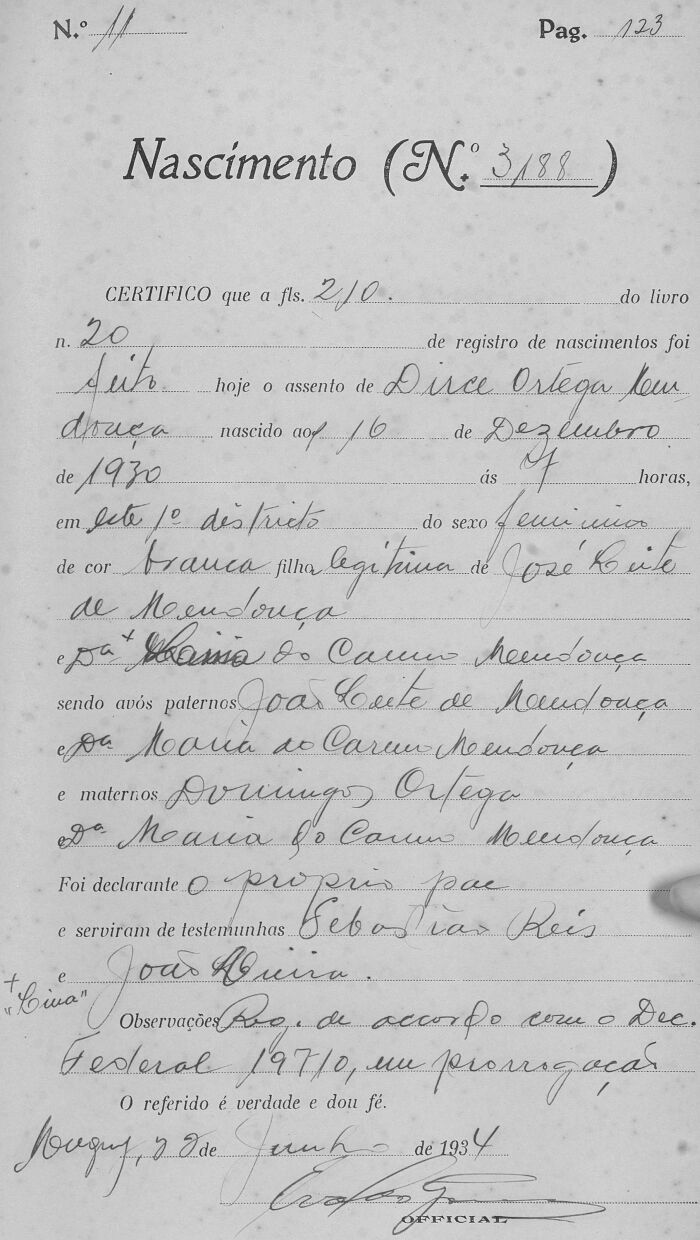 N.º 11 Pag. 123
Nascimento (N.º 3188)
CERTIFICO que a fls. 210. do livro
n. 20 de registro de nascimentos foi
feito hoje o assento de Dirce Ortega Men-
donça nascido aos 16 de Dezembro
de 1930 ás 7 horas,
em este 1º districto do sexo feminino
de cor branca filha legitima de José Leite
de Mendonça
e Dª + Maria do Carmo Mendonça
sendo avós paternos João Leite de Mendonça
e Dª Maria do Carmo Mendonça
e maternos Domingos Ortega
e Dª Maria do Carmo Mendonça
Foi declarante o proprio pae
e serviram de testemunhas Sebastião Reis
e João Vieira.
+
Observações Reg. de accordo com o Dec.
Federal 19710, em prorrogação
O referido é verdade e dou fé.
22 de Junho de 1934
OFFICIAL